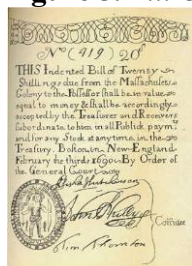 No (919) 20s
THIS Indented Bill of Twenty
Shillings due from the Massachusets
Colony to the Possessor shall be in value
equal to money & shall be accordingly
accepted by the Treasurer and Receivers
subordinate to him in all Publick paym.ts
and for any Stock at any time in the
Treasury. Boston in New-England
February the third 1690 By Order of
the General Court
Elisha Hutchinson
John Walley
Comittee
Tim Thornton